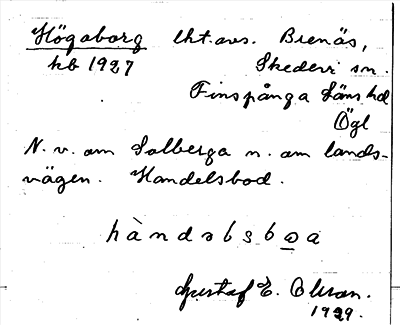 Högaborg lht. avs. Brenäs,
hb 1927 Skedevi sn.
Finspånga Läns hd
Ögl
N. v. om Solberga n. om lands-
vägen. Handelsbod.
hàndəbsboa
Gustaf E. Olsson.
1929.